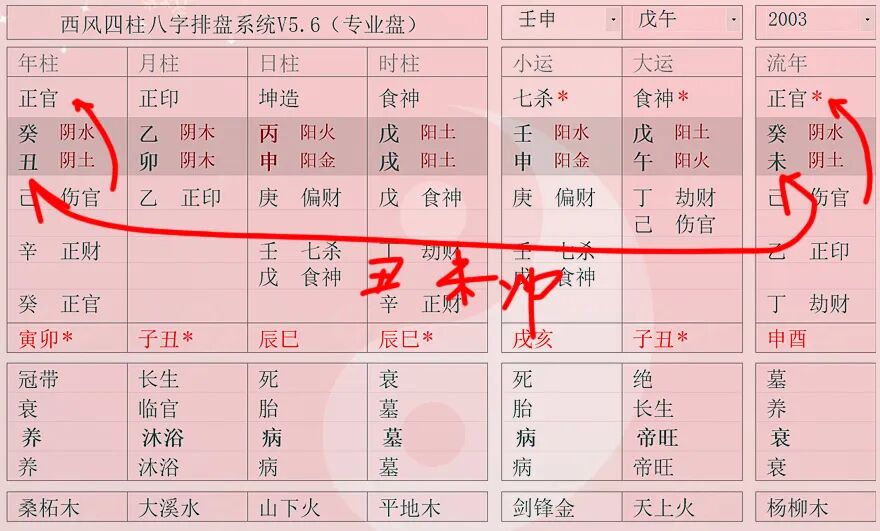 西风四柱八字排盘系统V5.6（专业盘） 壬申 戊午 2003
年柱 月柱 日柱 时柱 小运 大运 流年
正官 正印 坤造 食神 七杀* 食神* 正官*
癸 阴水 乙 阴木 丙 阳火 戊 阳土 壬 阳水 戊 阳土 癸 阴水
丑 阴土 卯 阴木 申 阳金 戌 阳土 申 阳金 午 阳火 未 阴土
己 伤官 乙 正印 庚 偏财 戊 食神 庚 偏财 丁 劫财 己 伤官
己 伤官
辛 正财 壬 七杀 丁 劫财 壬 七杀 乙 正印
戊 食神 戊 食神
癸 正官 辛 正财 丁 劫财
丑未冲
寅卯* 子丑* 辰巳 辰巳* 戌亥 子丑* 申酉
冠带 长生 死 衰 死 绝 墓
衰 临官 胎 墓 胎 长生 养
养 沐浴 病 墓 病 帝旺 衰
养 沐浴 病 墓 病 帝旺 衰
桑柘木 大溪水 山下火 平地木 剑锋金 天上火 杨柳木